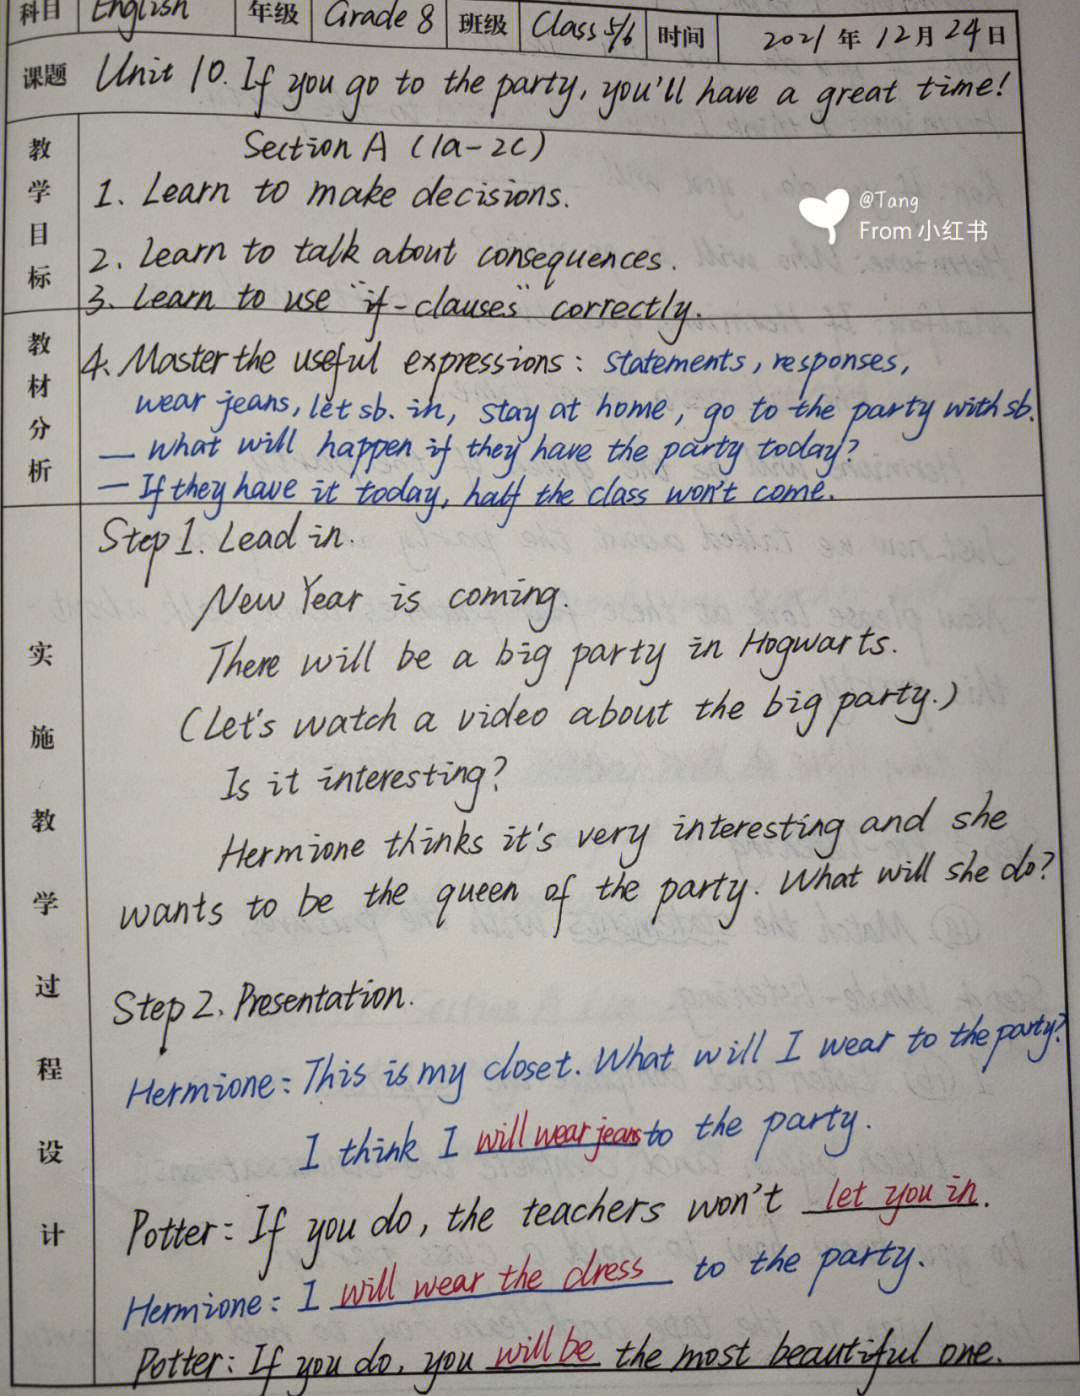 科目 English 年级 Grade 8 班级 Class 5/6 时间 2021年12月24日
课题 Unit 10. If you go to the party, you'll have a great time!
教学目标
Section A (1a-2c)
1. Learn to make decisions.
@Tang
From 小红书
2. Learn to talk about consequences.
3. Learn to use "if-clauses" correctly.
教材分析
4. Master the useful expressions: statements, responses,
wear jeans, let sb. in, stay at home, go to the party with sb.
— What will happen if they have the party today?
— If they have it today, half the class won't come.
实施教学过程设计
Step 1. Lead in.
New Year is coming.
There will be a big party in Hogwarts.
(Let's watch a video about the big party.)
Is it interesting?
Hermione thinks it's very interesting and she
wants to be the queen of the party. What will she do?
Step 2. Presentation.
Hermione: This is my closet. What will I wear to the party?
I think I will wear jeans to the party.
Potter: If you do, the teachers won't let you in.
Hermione: I will wear the dress to the party.
Potter: If you do, you will be the most beautiful one.